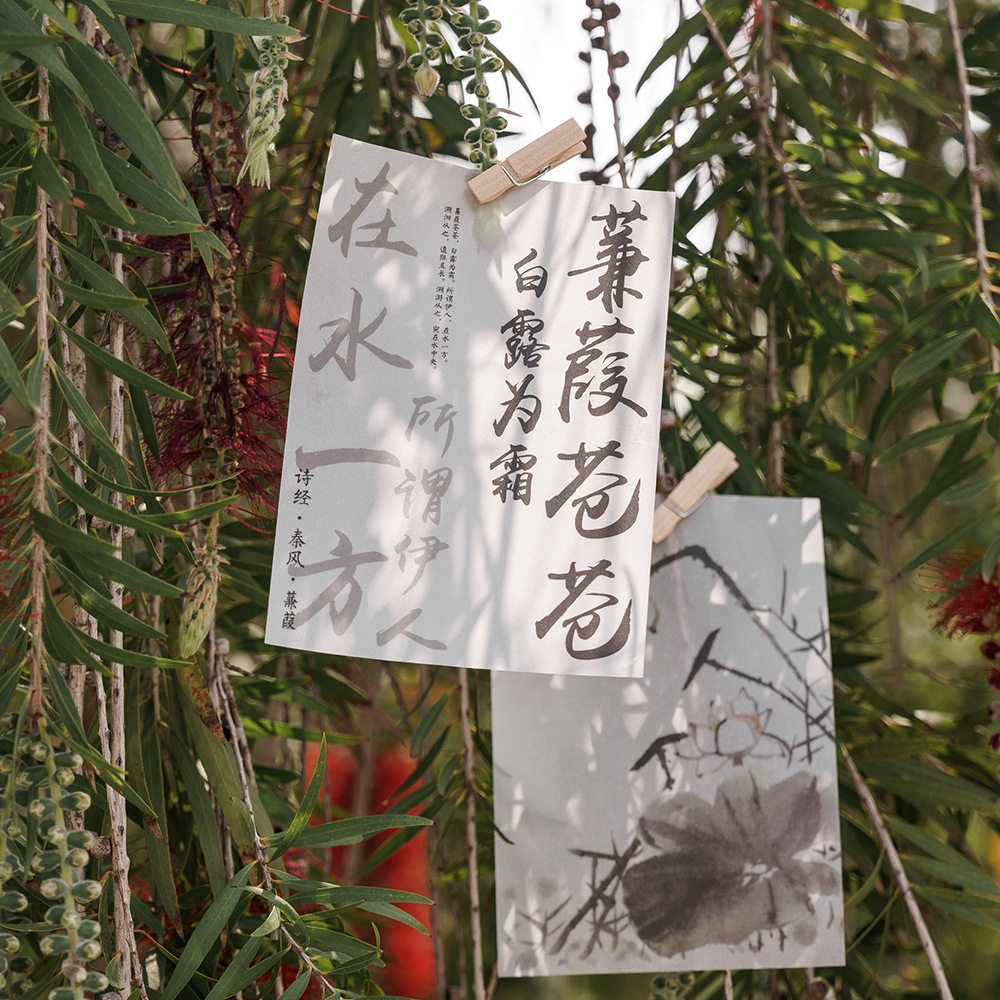 蒹葭苍苍
白露为霜
蒹葭苍苍，白露为霜。所谓伊人，在水一方。
溯洄从之，道阻且长。溯游从之，宛在水中央。
所谓伊人
在水一方
诗经·秦风·蒹葭